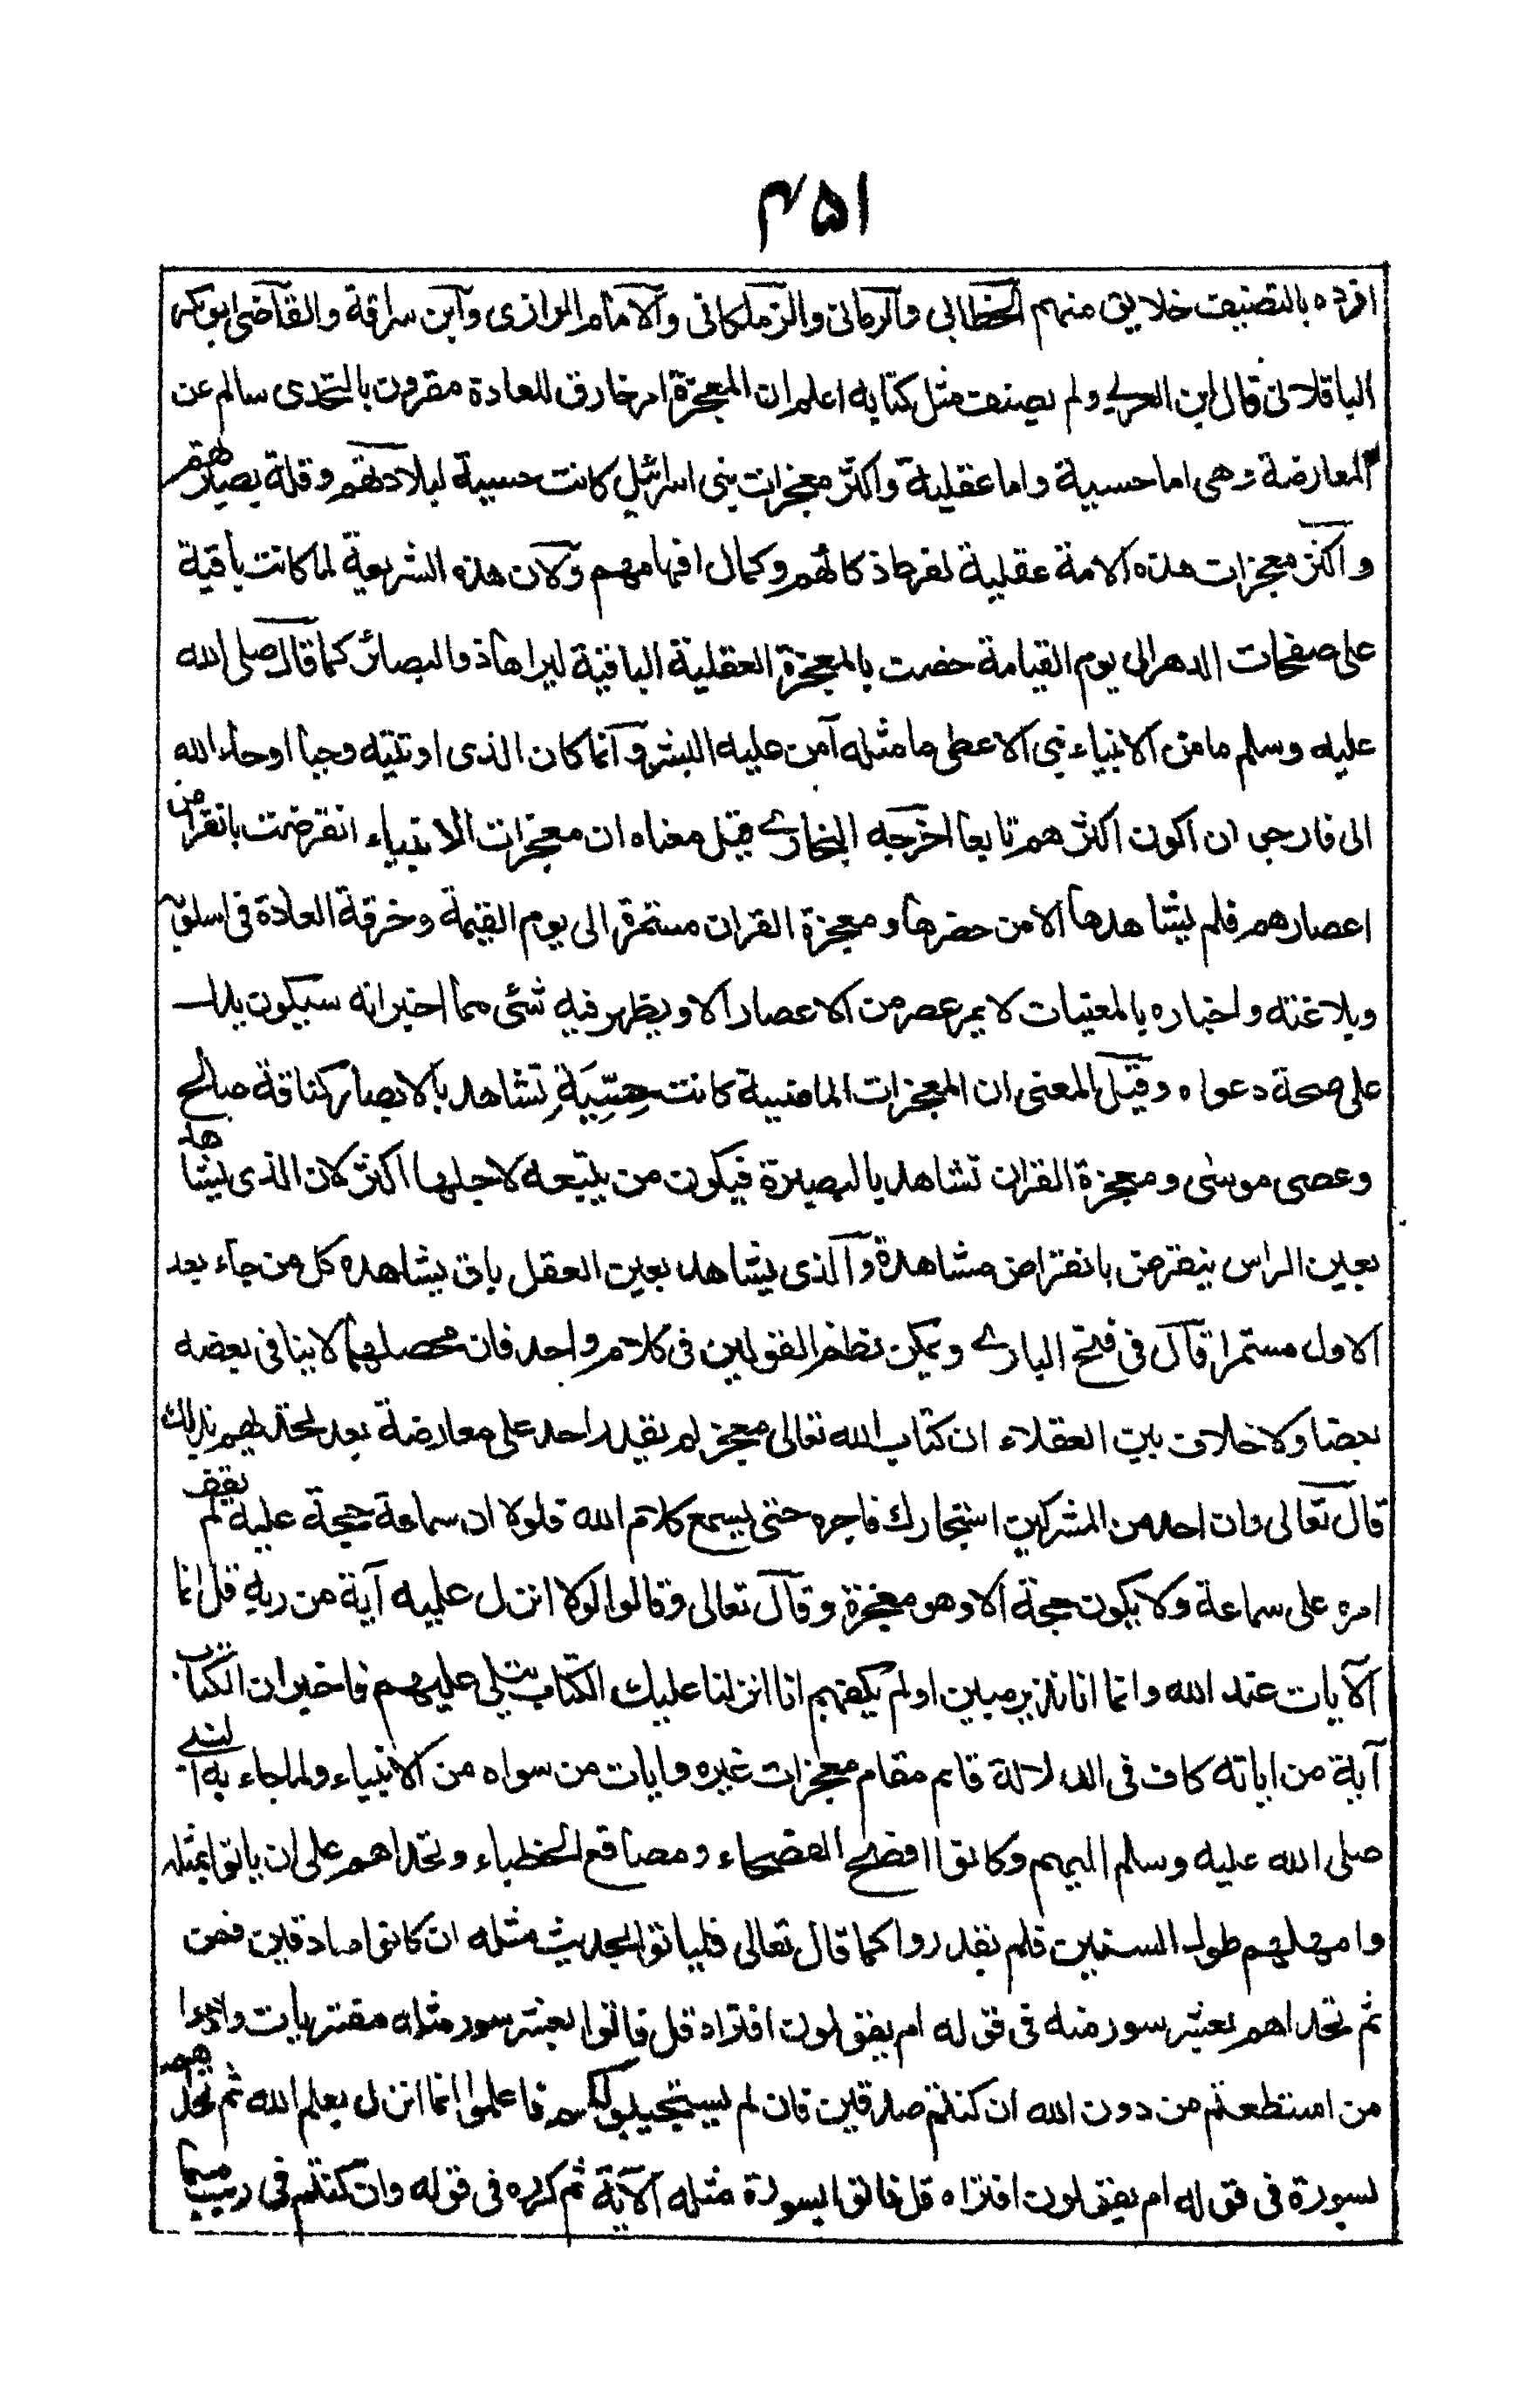 ۴۵۱
افرده بالتصنيف خلايق منهم الخطابي والرماني والزملكاني والامام الرازى وابن سراقة والقاضى ابوبكر
الباقلاني قال ابن العربي ولم يصنف مثل كتابه اعلم ان المعجزة امر خارق للعادة مقرون بالتحدى سالم عن
المعارضة وهى اما حسية واما عقلية واكثر معجزات بنى اسرائيل كانت حسية لبلادتهم وقلة بصيرتهم
واكثر معجزات هذه الامة عقلية لفرط ذكائهم وكمال افهامهم ولان هذه الشريعة لما كانت باقية
على صفحات الدهر الى يوم القيامة خصت بالمعجزة العقلية الباقية ليراها ذوالبصائر كما قال صلى الله
عليه وسلم ما من الانبياء نبي الا اعطى ما مثله آمن عليه البشر وانما كان الذى اوتيته وحيا اوحاه الله
الى فارجى ان اكون اكثرهم تابعا اخرجه البخارے قيل معناه ان معجزات الانبياء انقرضت بانقراض
اعصارهم فلم يشاهدها الا من حضرها ومعجزة القران مستمرة الى يوم القيمة وخرقة العادة فى اسلوبه
وبلاغته واخباره بالمغيبات لا يمر عصر من الاعصار الا ويظهر فيه شئى مما اخبر انه سيكون يدل
على صحة دعواه وقيل المعنى ان المعجزات الماضية كانت حِسِّيَةِ تشاهد بالابصار كناقة صالح
وعصى موسٰى ومعجزة القران تشاهد بالبصيرة فيكون من يتبعه لاجلها اكثر لان الذى يشاهد
بعين الراس ينقرض بانقراض مشاهدة والذى يشاهد بعين العقل باق يشاهده كل من جاء بعد
الاول مستمرا قال فى فتح البارے ويمكن نظم القولين فى كلام واحد فان محصلهما لا ينافى بعضه
بعضا ولا خلاف بين العقلاء ان كتاب الله تعالى معجز لم يقدر احد على معارضة بعد تحديهم بذلك
قال تعالى وان احد من المشركين استجارك فاجره حتى يسمع كلام الله فلولا ان سماعة حجة عليه لم يقف
امره على سماعة ولا يكون حجة الا وهو معجزة وقال تعالى وقالوا لولا انزل عليه آية من ربه قل انما
الآيات عند الله وانما انا نذير مبين اولم يكفهم انا انزلنا عليك الكتاب يتلى عليهم فاخبر ان الكتاب
آية من اياته كاف فى الدلالة قائم مقام معجزات غيره وايات من سواه من الانبياء ولما جاء به النبے
صلى الله عليه وسلم اليهم وكانوا افصح الفصحاء ومصاقع الخطباء وتحداهم على ان ياتوا بمثله
وامهلهم طول السنين فلم يقدروا كما قال تعالى فلياتوا بحديث مثله ان كانوا صادقين فمن
ثم تحداهم بعشر سور منه فى قوله ام يقولون افتراه قل فاتوا بعشر سور مثله مفتريات وادعوا
من استطعتم من دون الله ان كنتم صادقين فان لم يستجيبوا لكم فاعلموا انما انزل بعلم الله ثم تحداهم
بسورة فى قوله ام يقولون افتراه قل فاتوا بسورة مثله الآية ثم كرره فى قوله وان كنتم فى ريب مما